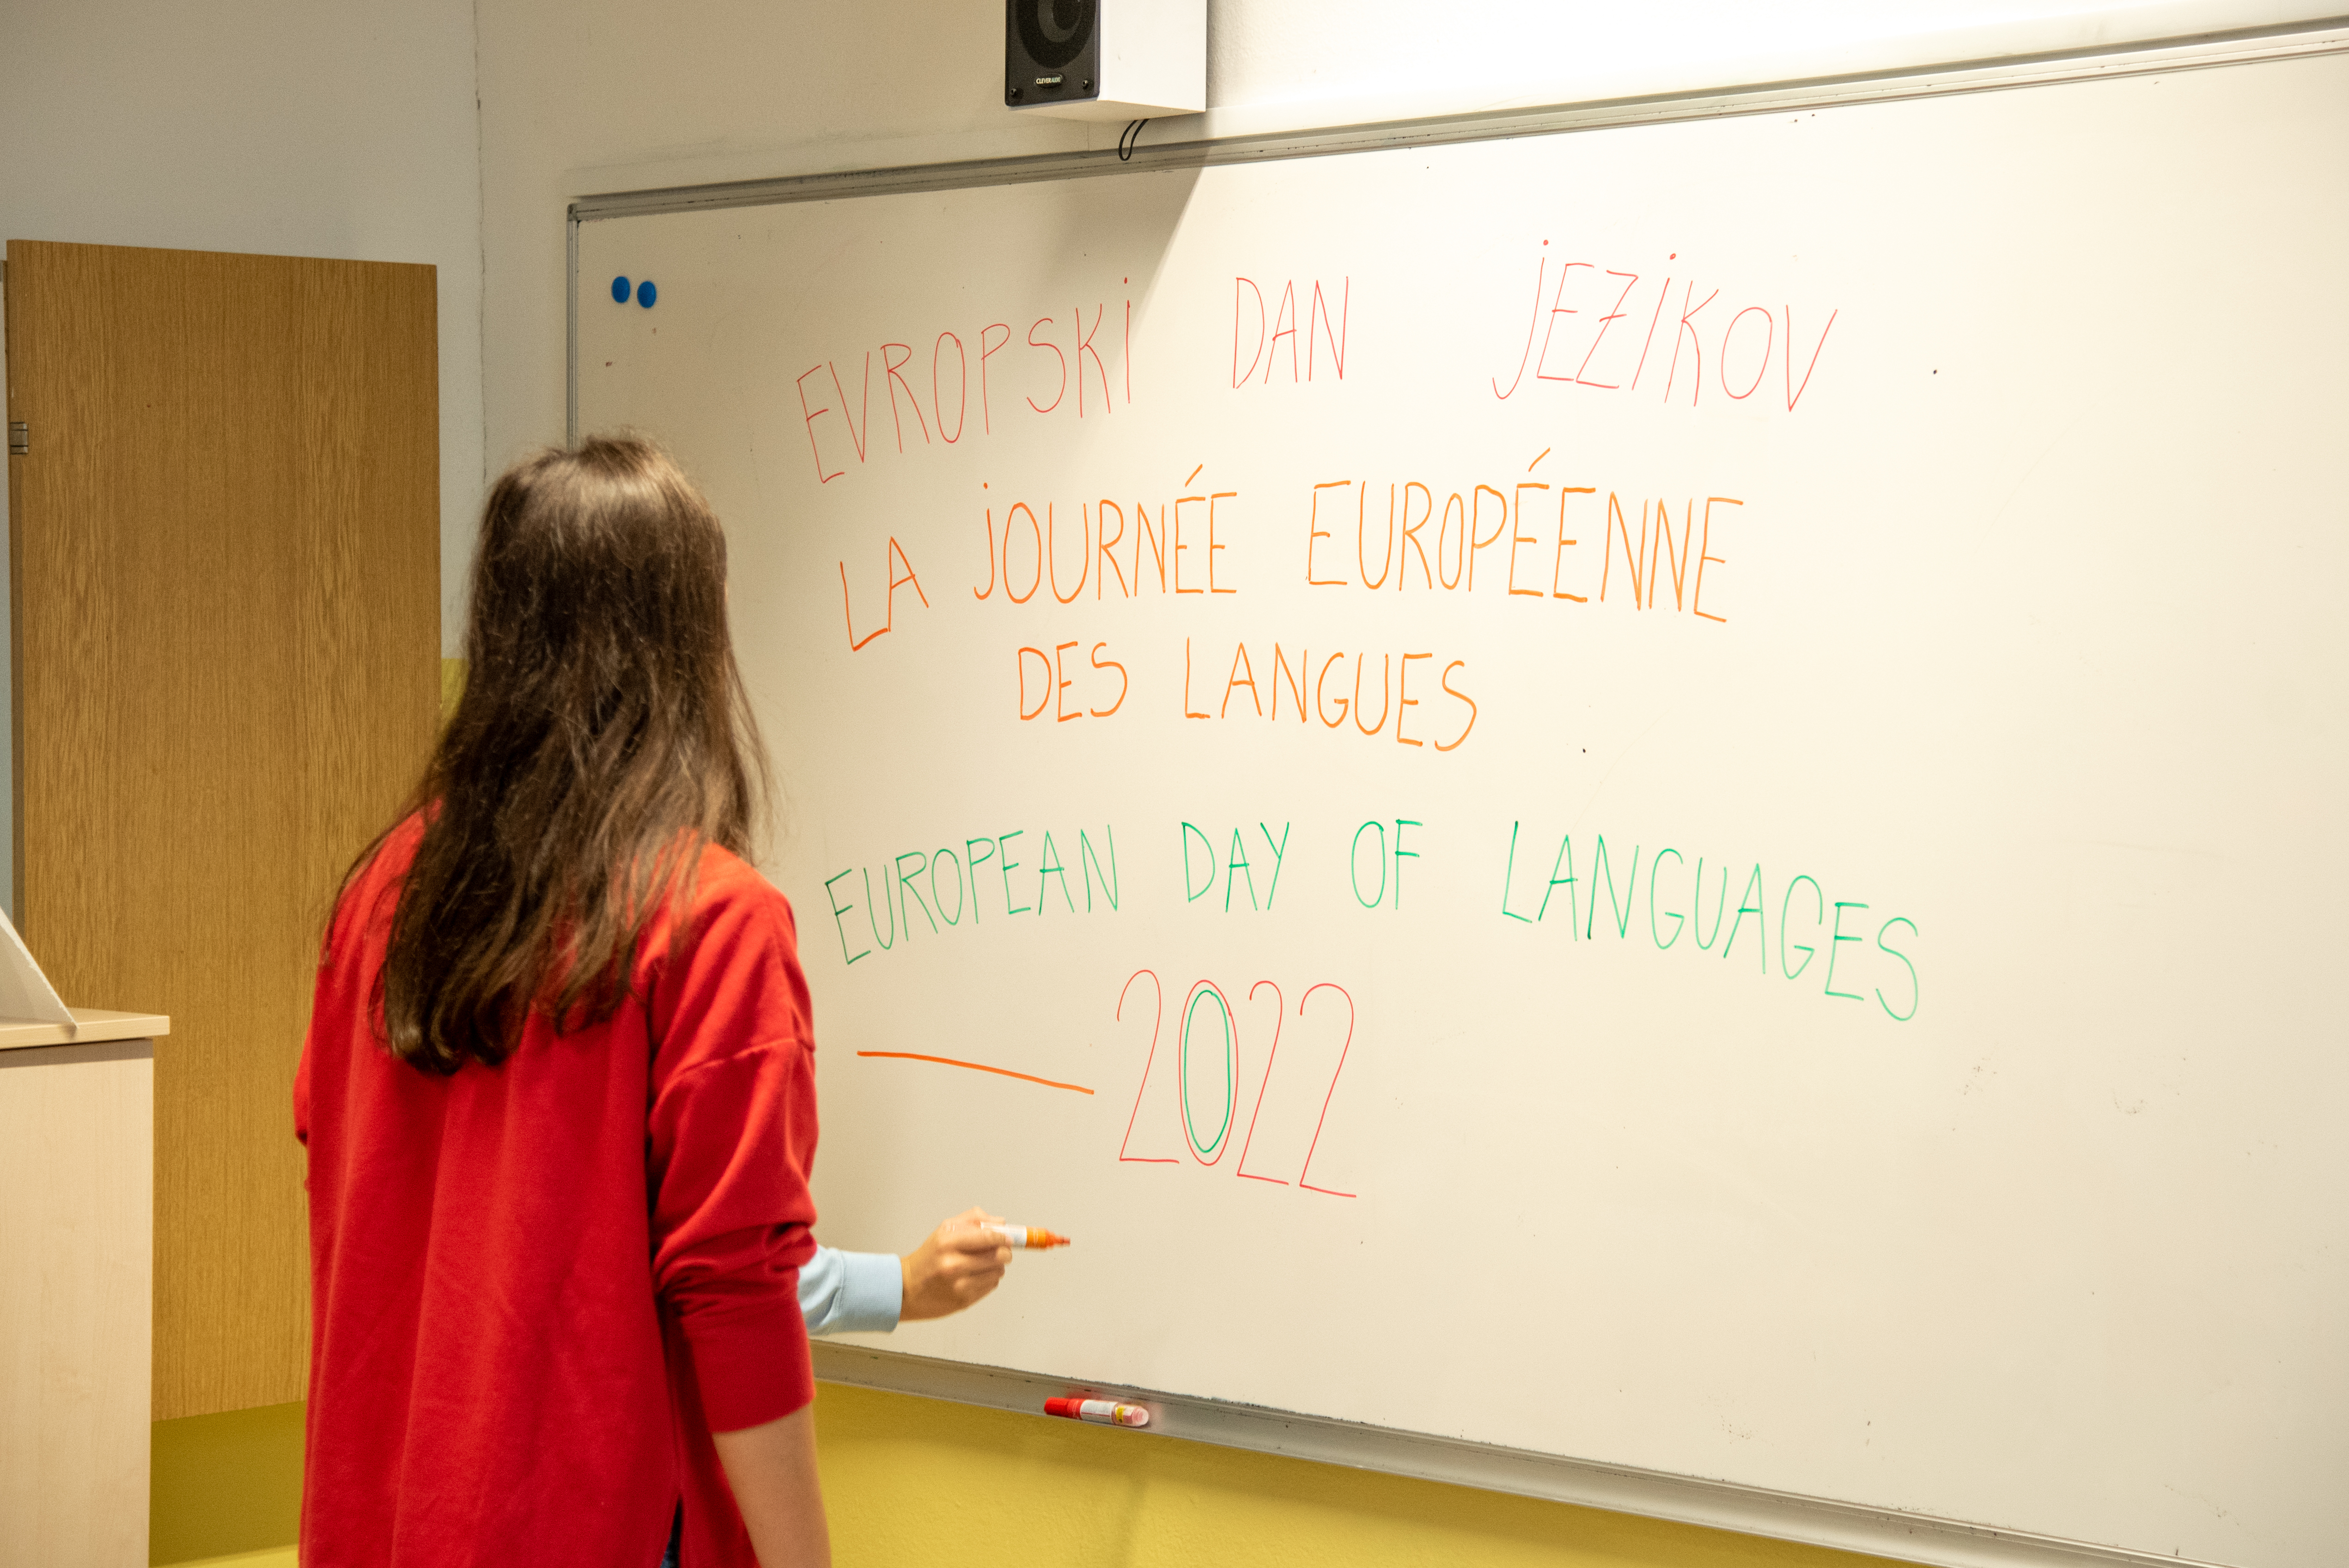 EVROPSKI DAN JEZIKOV
LA JOURNÉE EUROPÉENNE
DES LANGUES
EUROPEAN DAY OF LANGUAGES
2022